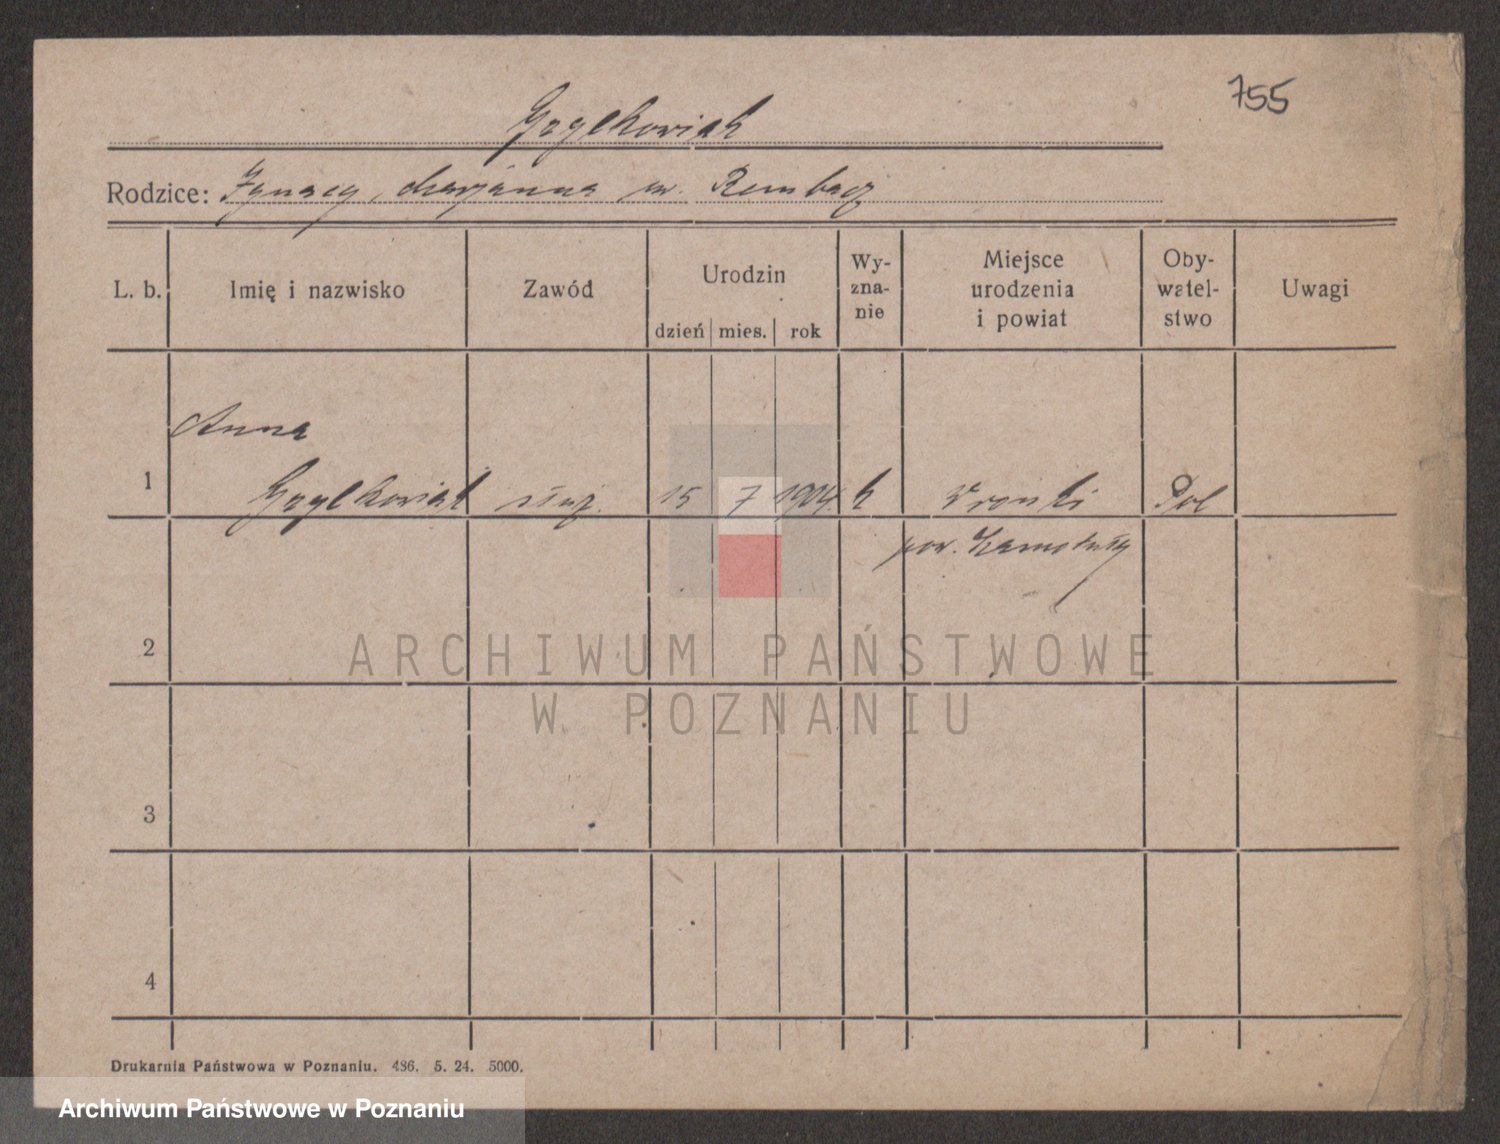 755
Grylkowiak
Rodzice: Ignacy, Marjanna ur. Rembacz
L. b. Imię i nazwisko Zawód Urodzin dzień mies. rok Wy-zna-nie Miejsce urodzenia i powiat Oby-watel-stwo Uwagi
Anna
1 Grylkowiak służ. 15 7 1904. k Wronki Pol
pow. Szamotuły
2
ARCHIWUM PAŃSTWOWE
W POZNANIU
3
4
Drukarnia Państwowa w Poznaniu. 486. 5. 24. 5000.
Archiwum Państwowe w Poznaniu